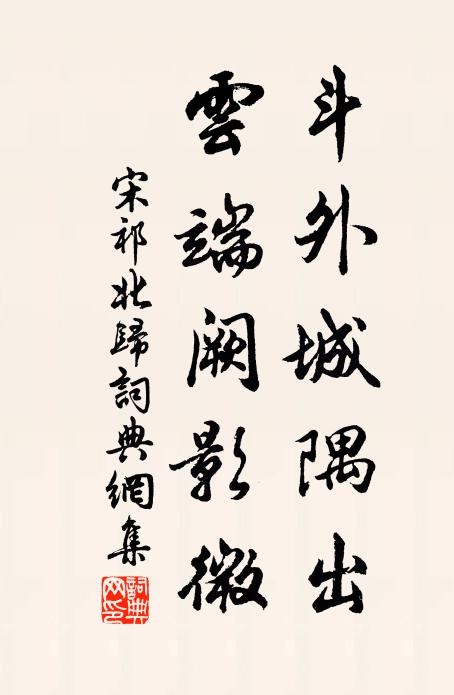 斗外城隅出
雲端闕影微
宋祁北歸詞典網集
詞典網印